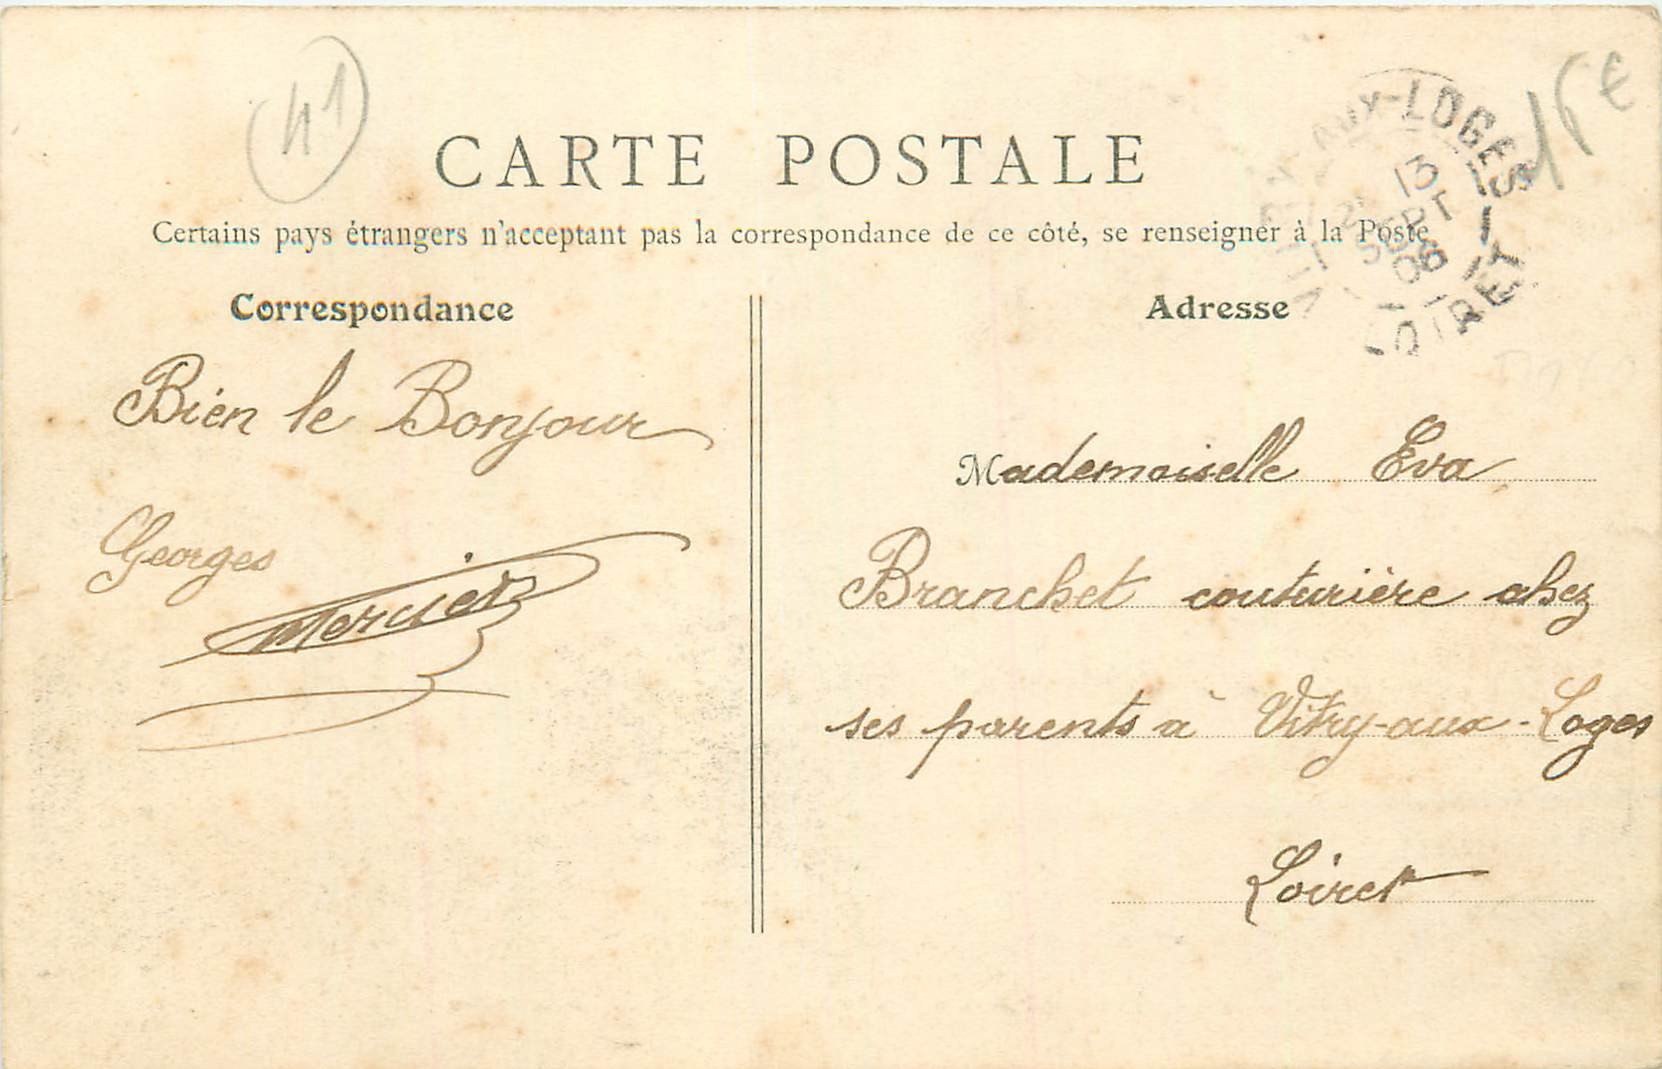 41
15 €
CARTE POSTALE
Certains pays étrangers n'acceptent pas la correspondance de ce côté, se renseigner à la Poste
VITRY-AUX-LOGES
13
SEPT
06
LOIRET
Correspondance
Bien le Bonjour
Georges
Mercier
Adresse
Mademoiselle Eva
Branchet couturière chez
ses parents à Vitry-aux-Loges
Loiret